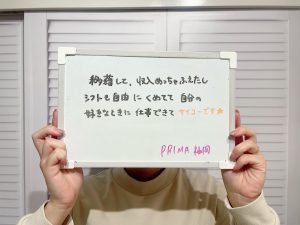 移籍して、収入めっちゃふえたし
シフトも自由にくめてて 自分の
好きなときに 仕事できて サイコーです★
PRIMA 静岡